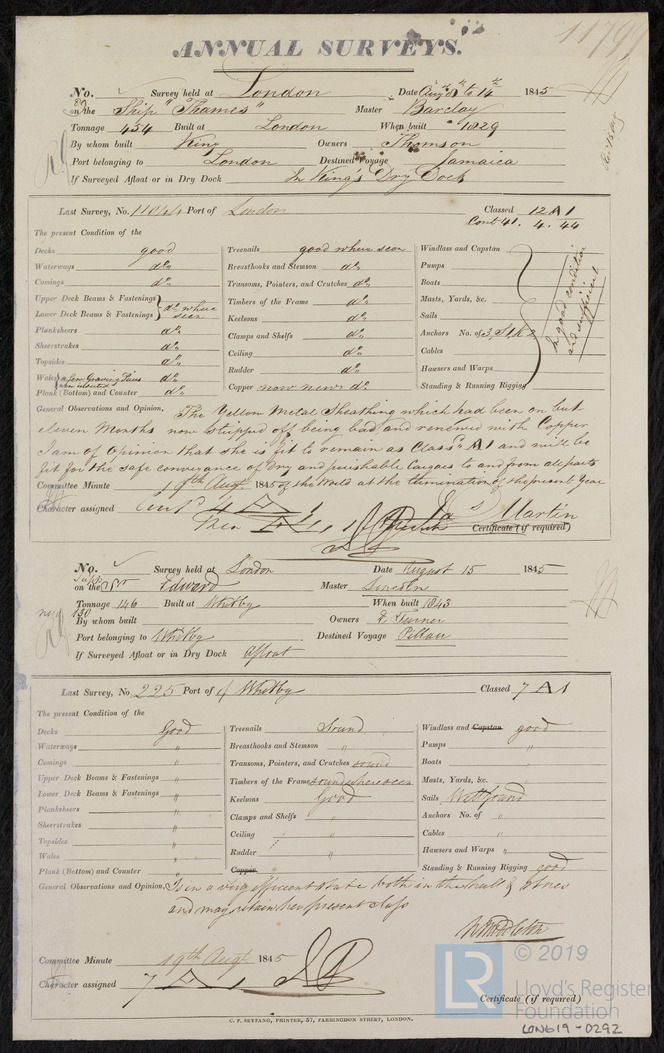 11799
ANNUAL SURVEYS.
No. Survey held at London Date Augt 8th to 14th 1845
on the Ship "Thames" Master Barclay
Tonnage 454 Built at London When built 1829
By whom built King Owners Thomson
Port belonging to London Destined Voyage Jamaica
If Surveyed Afloat or in Dry Dock In King's Dry Dock
Last Survey, No. 11044 Port of London Classed 12 A 1
Cont 41. 4. 44
The present Condition of the
Decks good
Waterways do
Comings do
Upper Deck Beams & Fastenings
Lower Deck Beams & Fastenings do where seen
Planksheers do
Sheerstrakes do
Topsides do
Wales a few Graving Pieces do
Plank (Bottom) and Counter do
Treenails good where seen
Breasthooks and Stemson do
Transoms, Pointers, and Crutches do
Timbers of the Frame do
Keelsons do
Clamps and Shelfs do
Ceiling do
Rudder do
Copper now new do
Windlass and Capstan
Pumps
Boats
Masts, Yards, &c.
Sails
Anchors No. of 3, St, k 2
Cables
Hawsers and Warps
Standing & Running Rigging
In good condition
and sufficient
General Observations and Opinion, The Yellow Metal Sheathing which had been on but
eleven Months now stripped off being bad and renewed with Copper
I am of Opinion that she is fit to remain as Class'd A1 and will be
fit for the safe conveyance of Dry and perishable Cargoes to and from all parts
Committee Minute 19th Augt 1845 of the World at the termination of the present Year
Character assigned Cont A 1
Then A 1 Jas Martin
Certificate (if required)
No. Survey held at London Date August 15 1845
on the Sr Edward Master Lincoln
Tonnage 146 Built at Whitby When built 1843
150
By whom built Owners R Turner
Port belonging to Whitby Destined Voyage Pillau
If Surveyed Afloat or in Dry Dock Afloat
Last Survey, No. 225 Port of Whitby Classed 7 A 1
The present Condition of the
Decks Good
Waterways "
Comings "
Upper Deck Beams & Fastenings "
Lower Deck Beams & Fastenings "
Planksheers "
Sheerstrakes "
Topsides "
Wales "
Plank (Bottom) and Counter "
Treenails Sound
Breasthooks and Stemson "
Transoms, Pointers, and Crutches sound
Timbers of the Frame sound where seen
Keelsons Good
Clamps and Shelfs "
Ceiling "
Rudder "
Copper "
Windlass and Capstan good
Pumps "
Boats "
Masts, Yards, &c. "
Sails Well found
Anchors No. of "
Cables "
Hawsers and Warps "
Standing & Running Rigging good
General Observations and Opinion, Is in a very efficient state both in the hull & stores
and may retain her present class
W Middleton
Committee Minute 19th Augt 1845
Character assigned 7 A 1
Certificate (if required)
C. F. SEYFANG, PRINTER, 57, FARRINGDON STREET, LONDON.
© 2019
LR Lloyd's Register
Foundation
LON619-0292